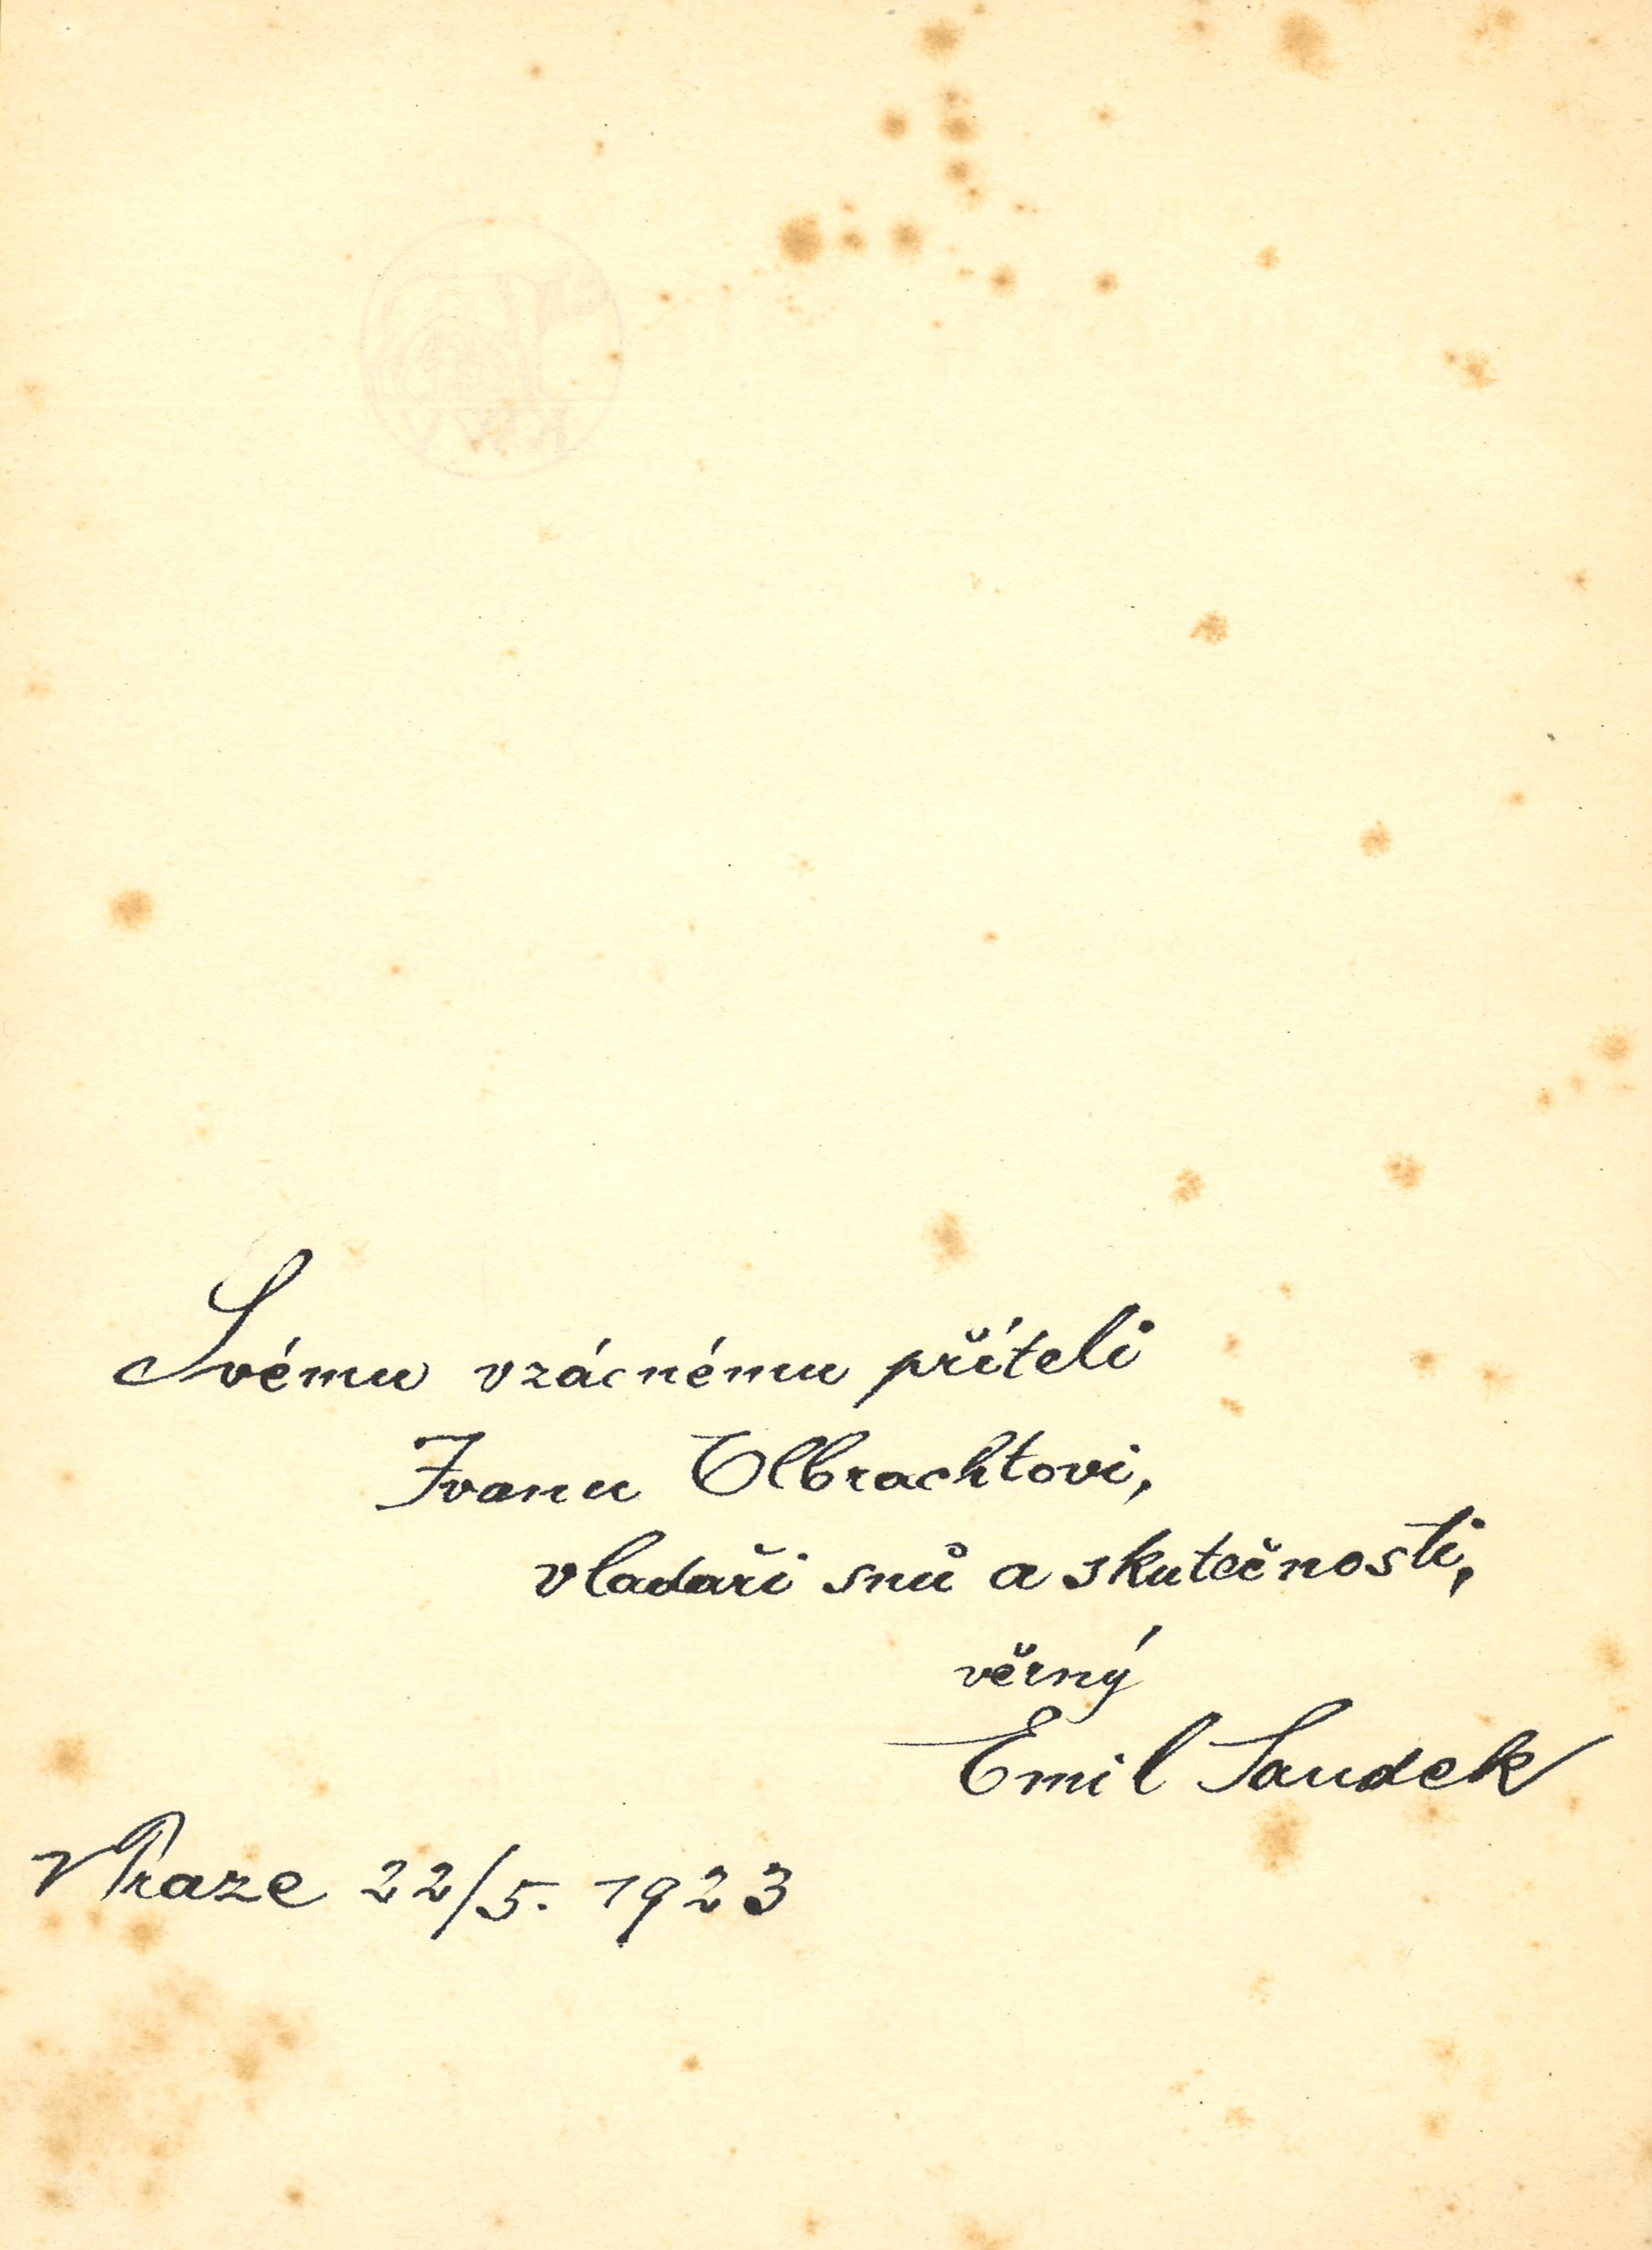 Svému vzácnému příteli
Ivanu Olbrachtovi,
vladaři snů a skutečnosti,
věrný
Emil Saudek
V Praze 22/5. 1923